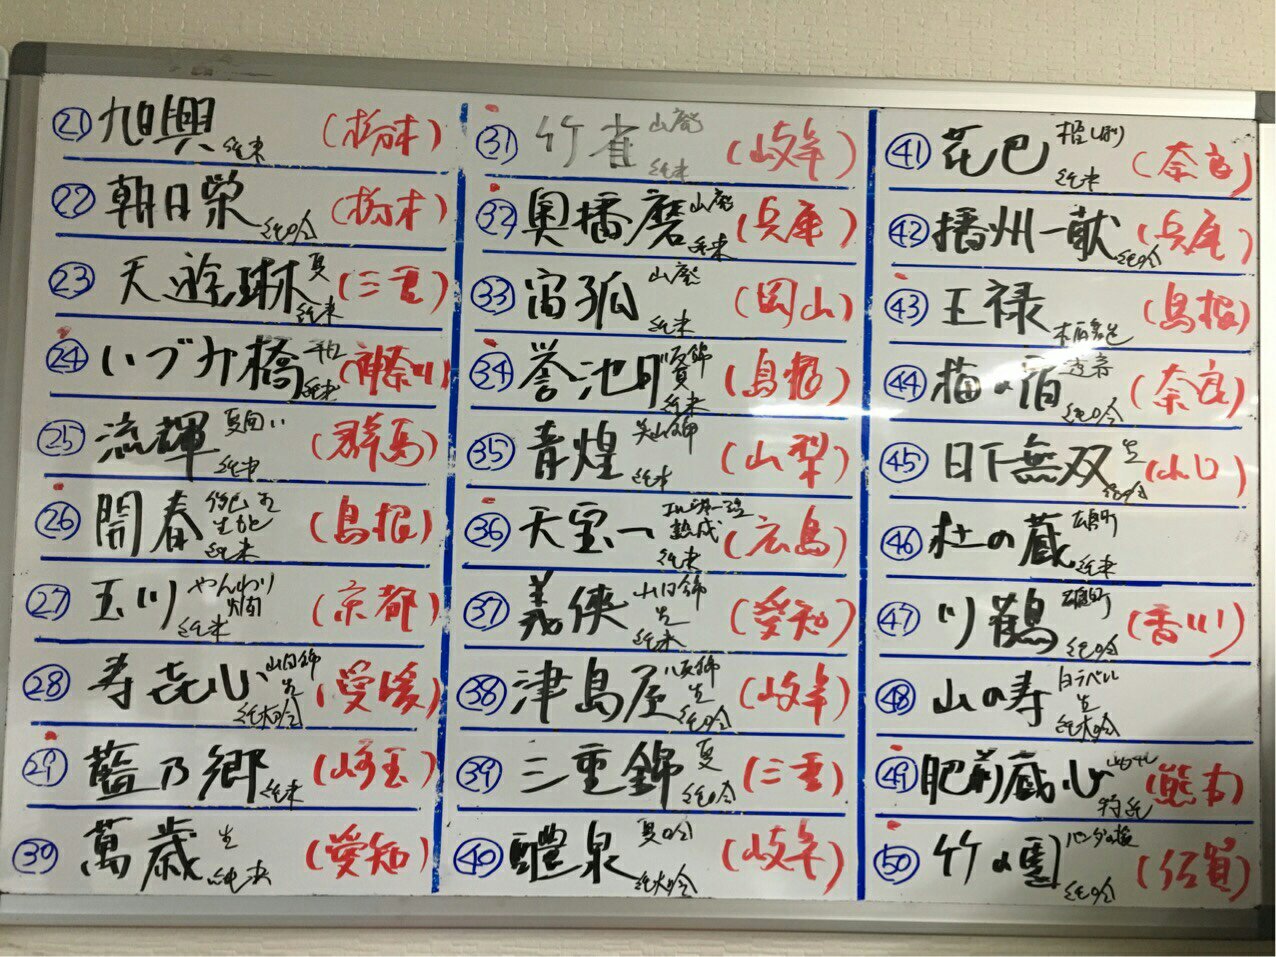 ㉑ 旭興 純米 (栃木)
㉒ 朝日栄 純吟 (栃木)
㉓ 天遊琳 夏 純米 (三重)
㉔ いづみ橋 純米 (神奈川)
㉕ 流輝 夏囲い 純米 (群馬)
㉖ 開春 純米 (島根)
㉗ 玉川 やんわり 純米 (京都)
㉘ 寿喜心 山田錦 生 純大吟 (愛媛)
㉙ 藍の郷 純米 (埼玉)
㉚ 萬歳 生 純米 (愛知)
㉛ 竹雀 山廃 純米 (岐阜)
㉜ 奥播磨 山廃 純米 (兵庫)
㉝ 宙狐 山廃 純米 (岡山)
㉞ 誉池月 改良八反錦 純米 (島根)
㉟ 青煌 美山錦 純米 (山梨)
㊱ 天宝一 熟成 純米 (広島)
㊲ 義侠 山田錦 生 純米 (愛知)
㊳ 津島屋 八反錦 生 純吟 (岐阜)
㊴ 三重錦 夏 純吟 (三重)
㊵ 醴泉 夏吟 純大吟 (岐阜)
㊶ 花巴 槽しぼり 純米 (奈良)
㊷ 播州一献 純吟 (兵庫)
㊸ 王禄 (島根)
㊹ 梅の宿 純吟 (奈良)
㊺ 日下無双 生 純吟 (山口)
㊻ 杜の蔵 広島町 純米
㊼ 川鶴 雄町 純吟 (香川)
㊽ 山の寿 白ラベル 生 純大吟
㊾ 肥前蔵心 特純 (熊本)
㊿ 竹の園 パンダの 純吟 (佐賀)